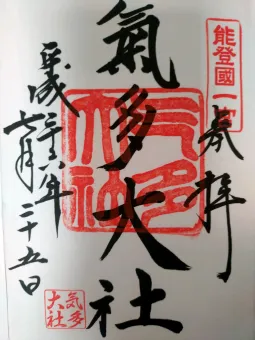 能登國一宮
奉拝
氣多大社
平成二十六年
七月二十五日
氣多
大社